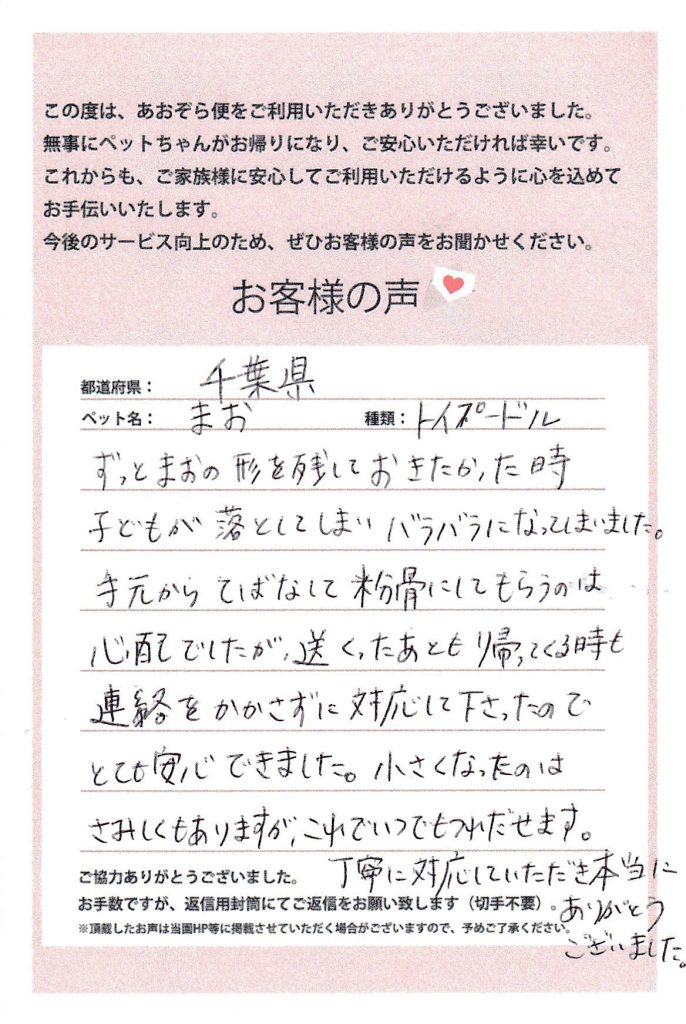 この度は、あおぞら便をご利用いただきありがとうございました。
無事にペットちゃんがお帰りになり、ご安心いただければ幸いです。
これからも、ご家族様に安心してご利用いただけるように心を込めて
お手伝いいたします。
今後のサービス向上のため、ぜひお客様の声をお聞かせください。
お客様の声
都道府県： 千葉県
ペット名： まお 種類： トイプードル
ずっとまおの形を残しておきたかった時
子どもが落としてしまいバラバラになってしまいました。
手元からてばなして粉骨にしてもらうのは
心配でしたが、送くったあとも帰ってくる時も
連絡をかかさずに対応して下さったので
とても安心できました。小さくなったのは
さみしくもありますが、これでいつでもつれだせます。
丁寧に対応していただき本当に
ありがとう
ございました。
ご協力ありがとうございました。
お手数ですが、返信用封筒にてご返信をお願い致します（切手不要）。
※頂戴したお声は当園HP等に掲載させていただく場合がございますので、予めご了承ください。